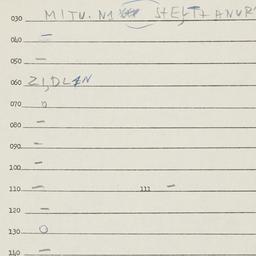 030 MITU. N1 StEFTt ANVR
040 –
050 –
060 ZI,DLAN
070 0
080 –
090 –
100 –
110 – 111 –
120 –
130 O
140 –